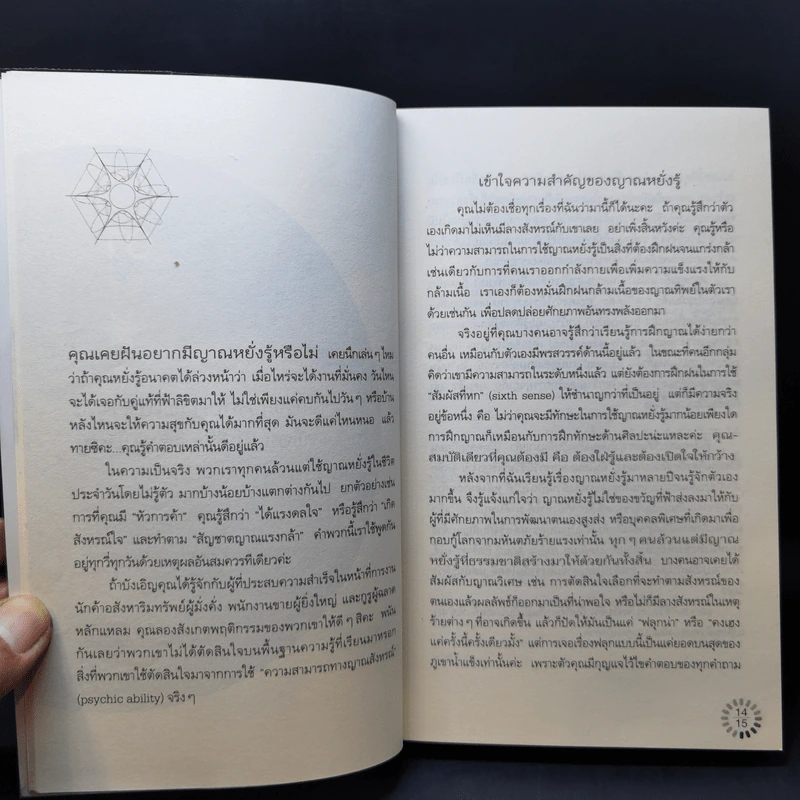 คุณเคยฝันอยากมีญาณหยั่งรู้หรือไม่ เคยนึกเล่นๆ ไหม
ว่าถ้าคุณหยั่งรู้อนาคตได้ล่วงหน้าว่า เมื่อไหร่จะได้งานที่มั่นคง วันไหน
จะได้เจอกับคู่แท้ที่ฟ้าลิขิตมาให้ ไม่ใช่เพียงแค่คบกันไปวันๆ หรือบ้าน
หลังไหนจะให้ความสุขกับคุณได้มากที่สุด มันจะดีแค่ไหนหนอ แล้ว
ทายซิคะ...คุณรู้คำตอบเหล่านั้นดีอยู่แล้ว
ในความเป็นจริง พวกเราทุกคนล้วนแต่ใช้ญาณหยั่งรู้ในชีวิต
ประจำวันโดยไม่รู้ตัว มากบ้างน้อยบ้างแตกต่างกันไป ยกตัวอย่างเช่น
การที่คุณมี "หัวการค้า" คุณรู้สึกว่า "ได้แรงดลใจ" หรือรู้สึกว่า "เกิด
สังหรณ์ใจ" และทำตาม "สัญชาตญาณแรงกล้า" คำพวกนี้เราใช้พูดกัน
อยู่ทุกวี่ทุกวันด้วยเหตุผลอันสมควรทีเดียวค่ะ
ถ้าบังเอิญคุณได้รู้จักกับผู้ที่ประสบความสำเร็จในหน้าที่การงาน
นักค้าอสังหาริมทรัพย์ผู้มั่งคั่ง พนักงานขายผู้ยิ่งใหญ่ และกูรูผู้ฉลาด
หลักแหลม คุณลองสังเกตพฤติกรรมของพวกเขาให้ดีๆ สิคะ พนัน
กันเลยว่าพวกเขาไม่ได้ตัดสินใจบนพื้นฐานความรู้ที่เรียนมาหรอก
สิ่งที่พวกเขาใช้ตัดสินใจมาจากการใช้ "ความสามารถทางญาณสังหรณ์"
(psychic ability) จริงๆ
เข้าใจความสำคัญของญาณหยั่งรู้
คุณไม่ต้องเชื่อทุกเรื่องที่ฉันว่ามานี้ก็ได้นะคะ ถ้าคุณรู้สึกว่าตัว
เองเกิดมาไม่เห็นมีลางสังหรณ์กับเขาเลย อย่าเพิ่งสิ้นหวังค่ะ คุณรู้หรือ
ไม่ว่าความสามารถในการใช้ญาณหยั่งรู้เป็นสิ่งที่ต้องฝึกฝนจนแกร่งกล้า
เช่นเดียวกับการที่คนเราออกกำลังกายเพื่อเพิ่มความแข็งแรงให้กับ
กล้ามเนื้อ เราเองก็ต้องหมั่นฝึกฝนกล้ามเนื้อของญาณทิพย์ในตัวเรา
ด้วยเช่นกัน เพื่อปลดปล่อยศักยภาพอันทรงพลังออกมา
จริงอยู่ที่คุณบางคนอาจรู้สึกว่าเรียนรู้การฝึกญาณได้ง่ายกว่า
คนอื่น เหมือนกับตัวเองมีพรสวรรค์ด้านนี้อยู่แล้ว ในขณะที่คนอีกกลุ่ม
คิดว่าเขามีความสามารถในระดับหนึ่งแล้ว แต่ยังต้องการฝึกฝนในการใช้
"สัมผัสที่หก" (sixth sense) ให้ชำนาญกว่าที่เป็นอยู่ แต่ก็มีความจริง
อยู่ข้อหนึ่ง คือ ไม่ว่าคุณจะมีทักษะในการใช้ญาณหยั่งรู้มากน้อยเพียงใด
การฝึกญาณก็เหมือนกับการฝึกทักษะด้านศิลปะน่ะแหละค่ะ คุณ-
สมบัติเดียวที่คุณต้องมี คือ ต้องใฝ่รู้และต้องเปิดใจให้กว้าง
หลังจากที่ฉันเรียนรู้เรื่องญาณหยั่งรู้มาหลายปีจนรู้จักตัวเอง
มากขึ้น จึงรู้แจ้งแก่ใจว่า ญาณหยั่งรู้ไม่ใช่ของขวัญที่ฟ้าส่งลงมาให้กับ
ผู้ที่มีศักยภาพในการพัฒนาตนเองสูงส่ง หรือบุคคลพิเศษที่เกิดมาเพื่อ
กอบกู้โลกจากมหันตภัยร้ายแรงเท่านั้น ทุกๆ คนล้วนแต่มีญาณ
หยั่งรู้ที่ธรรมชาติสร้างมาให้ด้วยกันทั้งสิ้น บางคนอาจเคยได้
สัมผัสกับญาณวิเศษ เช่น การตัดสินใจเลือกที่จะทำตามสังหรณ์ของ
ตนเองแล้วผลลัพธ์ก็ออกมาเป็นที่น่าพอใจ หรือไม่ก็มีลางสังหรณ์ในเหตุ
ร้ายต่างๆ ที่อาจเกิดขึ้น แล้วก็ปัดให้มันเป็นแค่ "ฟลุกน่า" หรือ "คงเฮง
แค่ครั้งนี้ครั้งเดียวมั้ง" แต่การเจอเรื่องฟลุกแบบนี้เป็นแค่ยอดบนสุดของ
ภูเขาน้ำแข็งเท่านั้นค่ะ เพราะตัวคุณมีกุญแจไว้ไขคำตอบของทุกคำถาม
14
15